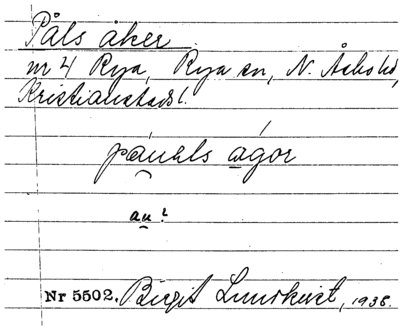 Påls åker
nr 4 Rya, Rya sn, N. Åsbo hd,
Kristianstads l.
páu̯ls a̲gor
a̲u̲?
Nr 5502. Birgit Lundkvist, 1938.